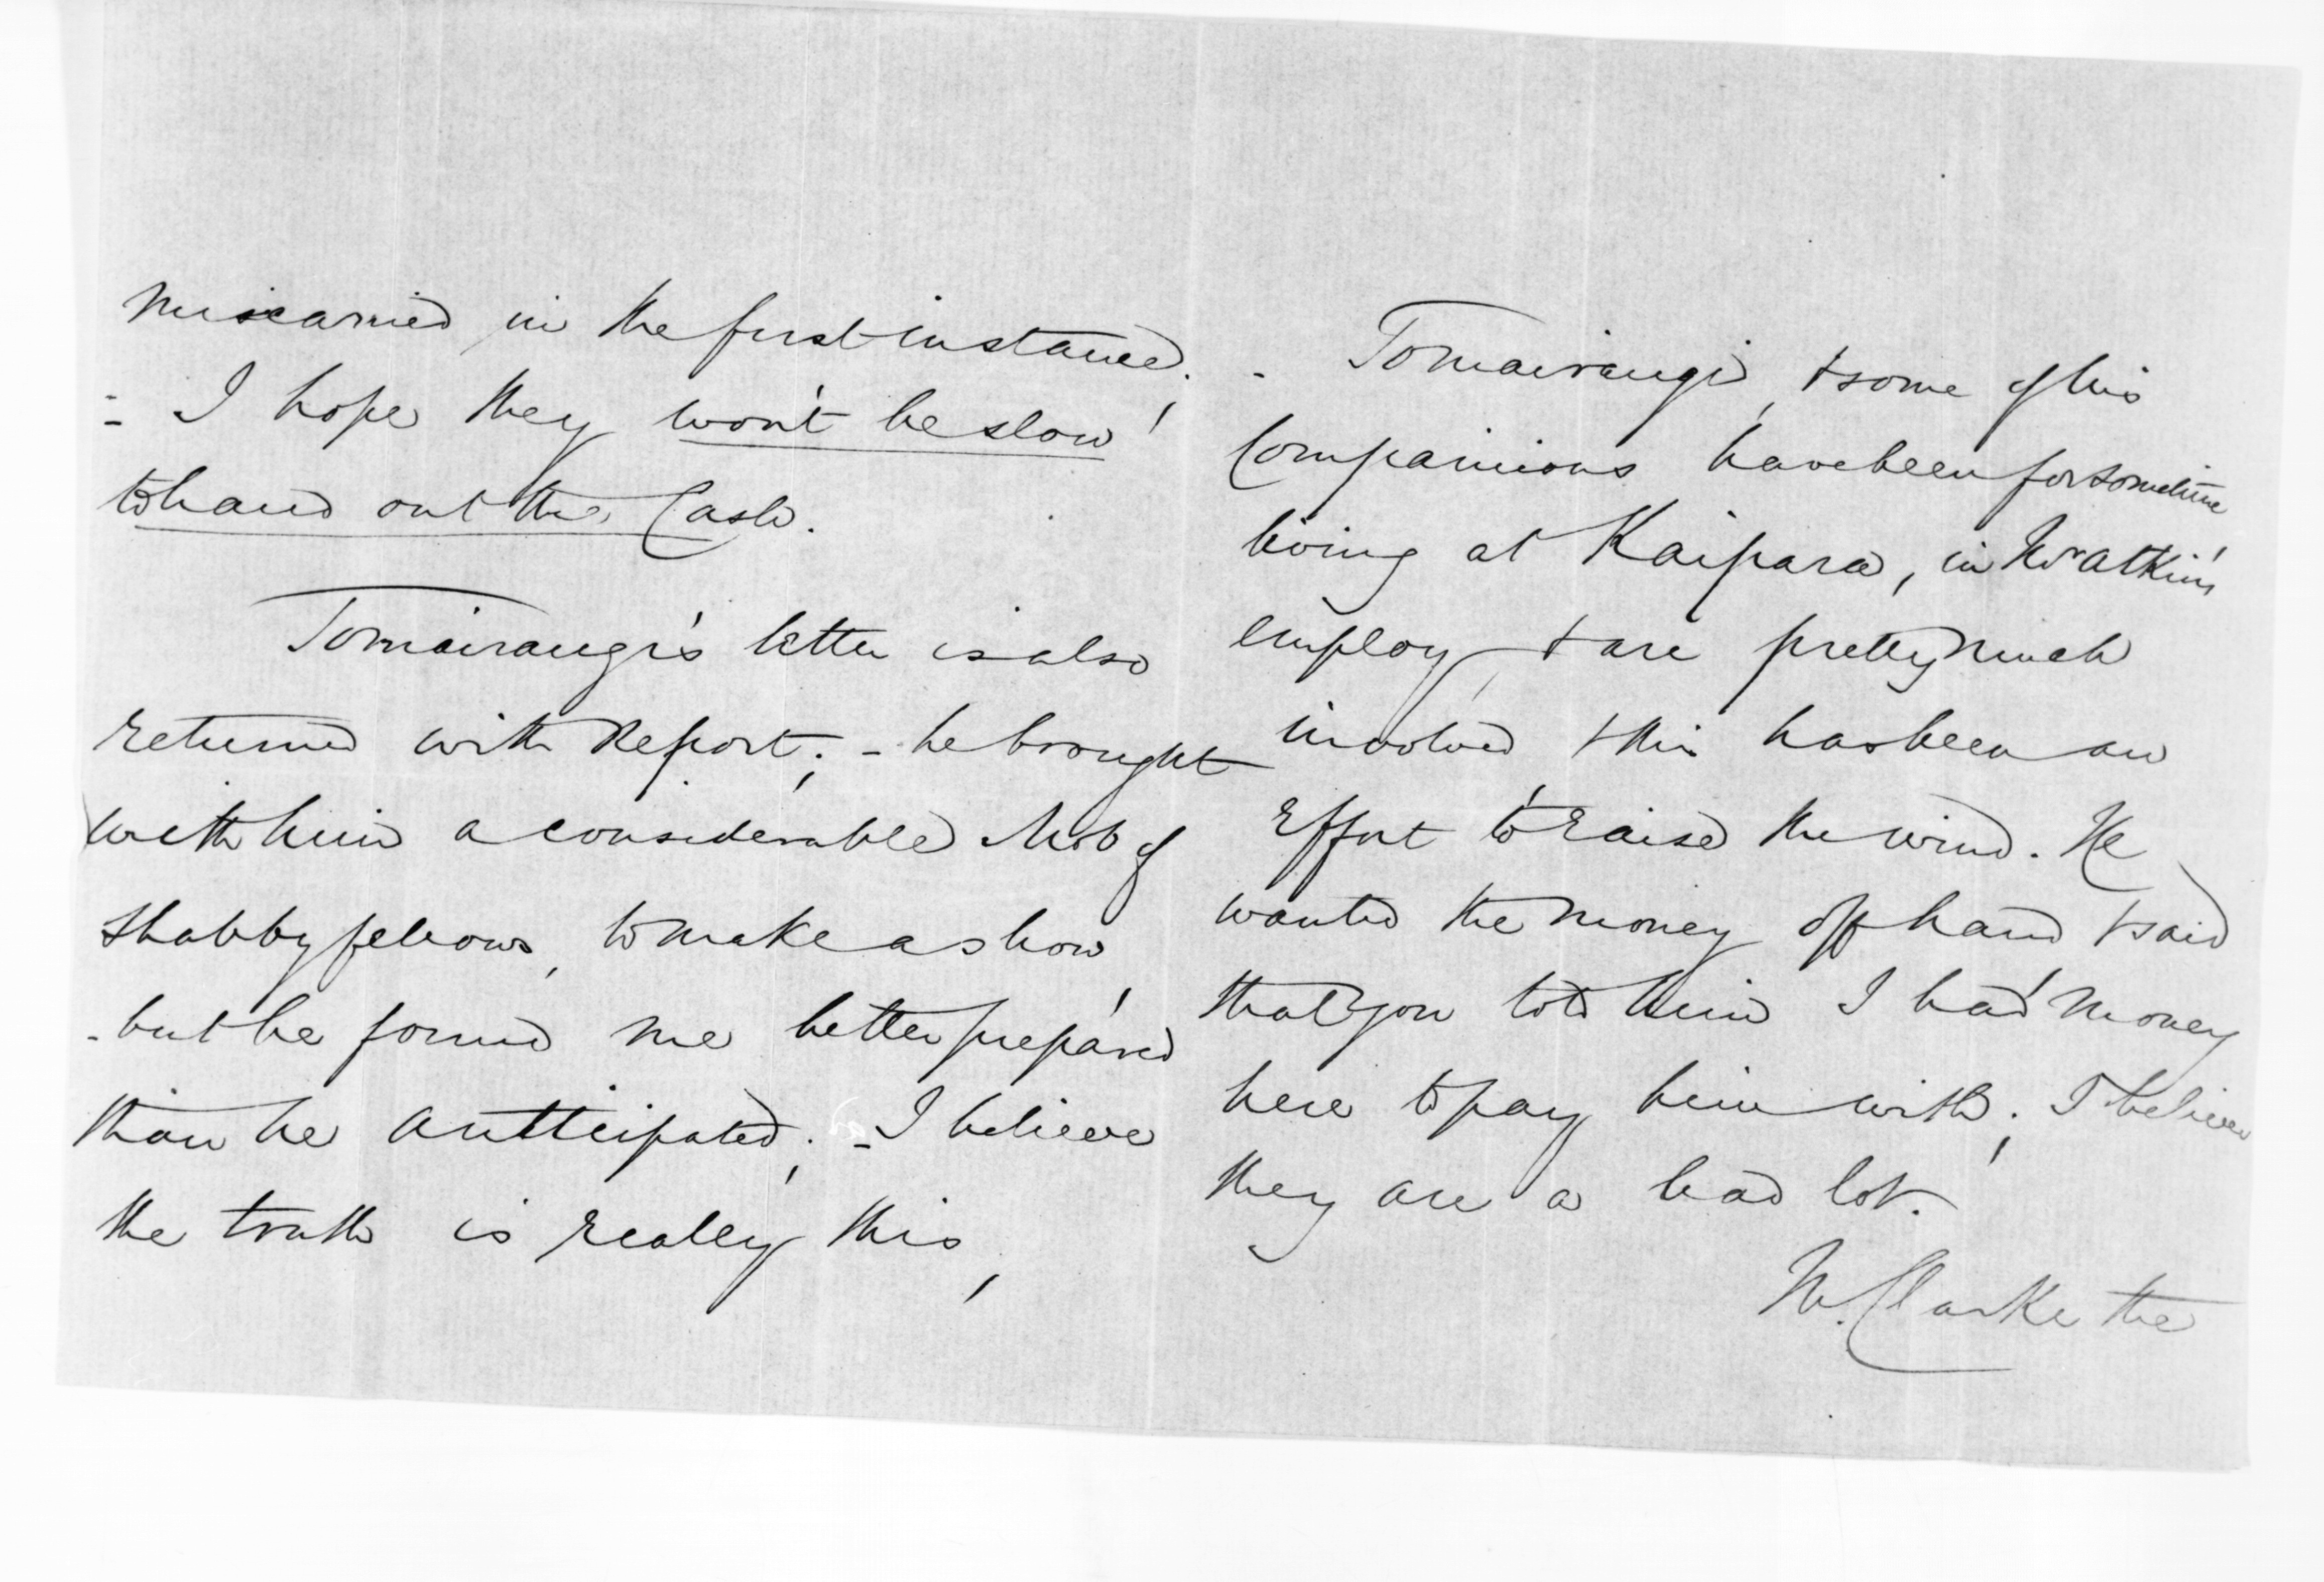 Miscarried in the first instance.
- I hope they won't be slow
to hand out the Cash.
Tomairangi's letter is also
returned with Report; - he brought
with him a considerable Mob of
shabby fellows, to make a show,
- but he found me better prepared
than he antticipated; - I believe
the truth is really this,
- Tomairangi, & some of his
Companions have been for sometime
living at Kaipara, in Mr Atkin's
employ, & are pretty much
involved, & this has been an
Effort to raise the wind. He
wanted the money off hand & said
that you told him I had money
here to pay him with; I believe
they are a bad lot.
Mr. Clarke the